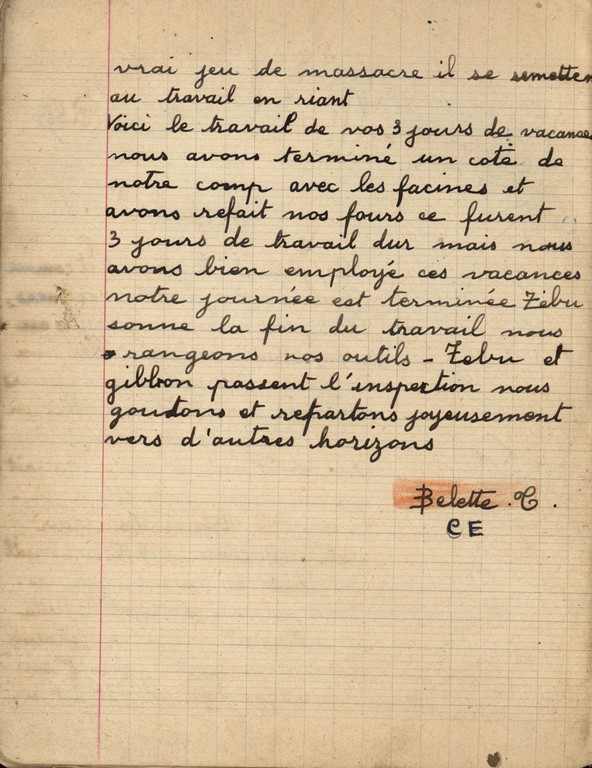 vrai jeu de massacre il se remetten
au travail en riant
Voici le travail de vos 3 jours de vacances
nous avons terminé un coté de
notre comp avec les facines et
avons refait nos fours ce furent
3 jours de travail dur mais nous
avons bien employé ces vacances
notre journée est terminée Zébu
sonne la fin du travail nous
rangeons nos outils - Zebu et
gibbon passent l'inspection nous
goutons et repartons joyeusement
vers d'autres horizons
Belette . C .
C E